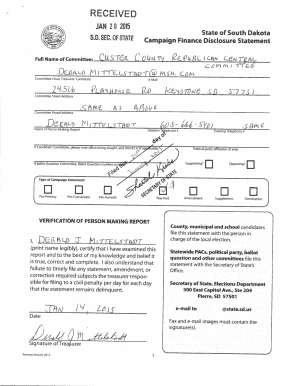 RECEIVED
JAN 20 2015
S.D. SEC. OF STATE
State of South Dakota
Campaign Finance Disclosure Statement
Full Name of Committee: CUSTER COUNTY REPUBLICAN CENTRAL COMMITTEE
DERALD MITTELSTADT@MSN.COM
Committee Chair/Treasurer, Candidate E-Mail
24516 PLAYHOUSE RD KEYSTONE, SD 57751
Committee Street Address
SAME AS ABOVE
Committee Postal Address
DERALD MITTELSTADT 605-666-5401 SAME
Name of Person Making Report Daytime Telephone # Evening Telephone #
Supporting? Opposing?
Filed this
SECRETARY OF STATE
Type of Campaign Statement
Pre-Primary Pre-Convention Pre-General Year End Amendment Supplement Termination
VERIFICATION OF PERSON MAKING REPORT
I, DERALD J. MITTELSTADT
(print name legibly), certify that I have examined this
report and to the best of my knowledge and belief it
is true, correct and complete. I also understand that
failure to timely file any statement, amendment, or
correction required subjects the treasurer responsible
for filing to a civil penalty per day for each day
that the statement remains delinquent.
JAN 14, 2015
Date:
Derald J. Mittelstadt
Signature of Treasurer
County, municipal and school candidates
file this statement with the person in
charge of the local election.
Statewide PACs, political party, ballot
question and other committees file this
statement with the Secretary of State's
Office.
Secretary of State, Elections Department
500 East Capitol Ave., Ste 204
Pierre, SD 57501
e-mail to @state.sd.us
Fax and e-mail images must contain the
signature(s).